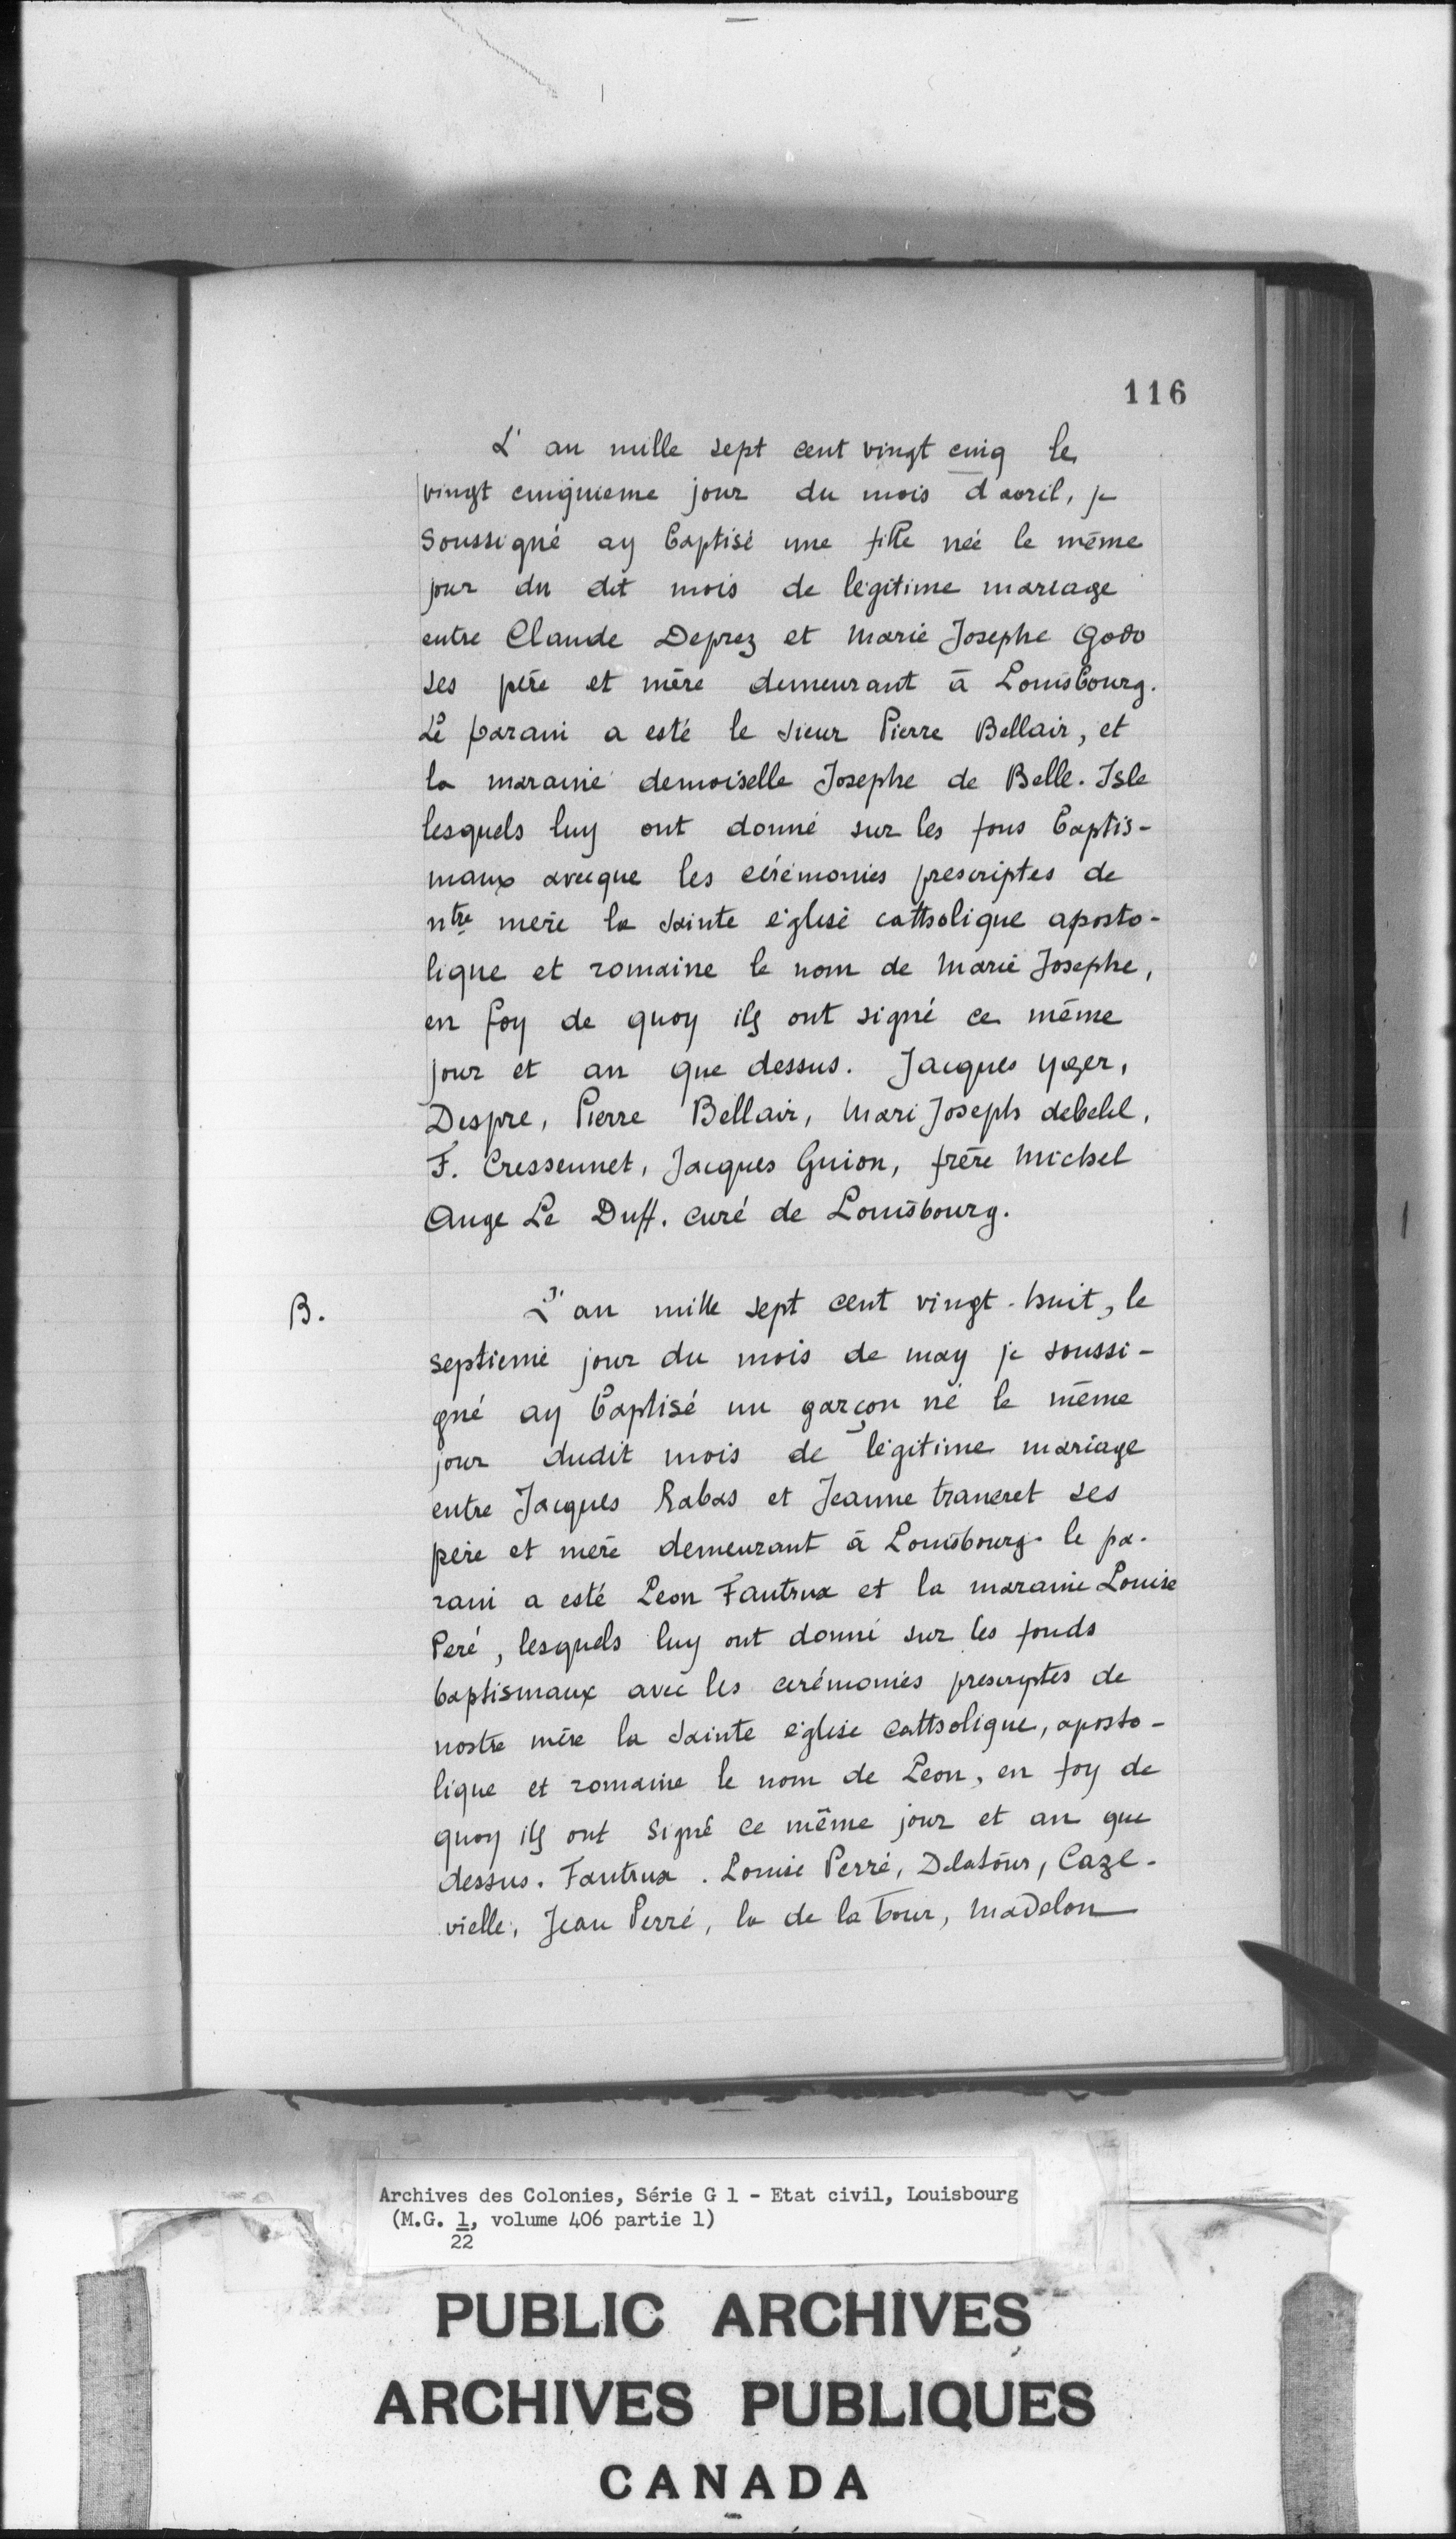 116
L' an mille sept cent vingt cinq le
vingt cinquieme jour du mois d avril, je
soussigné ay baptisé une fille née le même
jour du dit mois de légitime mariage
entre Claude Deprez et Marie Josephe Godo
ses père et mère demeurant à Louisbourg.
Le parain a esté le sieur Pierre Bellair, et
la maraine demoiselle Josephe de Belle-Isle
lesquels luy ont donné sur les fons baptis-
maux avecque les cérémonies prescriptes de
ntre mère la sainte église catholique aposto-
lique et romaine le nom de Marie Josephe,
en foy de quoy ils ont signé ce même
jour et an que dessus. Jacques yger,
Despre, Pierre Bellair, Mari Joseph debelil,
F. Cressennet, Jacques Guion, frère Michel
Ange Le Duff. curé de Louisbourg.
B. L'an mille sept cent vingt-huit, le
septieme jour du mois de may je soussi-
gné ay baptisé un garçon né le même
jour dudit mois de légitime mariage
entre Jacques Rabas et Jeanne traneret ses
père et mère demeurant à Louisbourg. le pa-
rain a esté Leon Fautrux et la maraine Louise
Peré, lesquels luy ont donné sur les fonds
baptismaux avec les cérémonies prescryptes de
nostre mère la sainte église catholique, aposto-
lique et romaine le nom de Leon, en foy de
quoy ils ont signé ce même jour et an que
dessus. Fautrux. Louise Perré, Delatour, Caze-
vielle, Jean Perré, la de la tour, Madelon
Archives des Colonies, Série G 1 - Etat civil, Louisbourg
(M.G. 1, volume 406 partie 1)
22
PUBLIC ARCHIVES
ARCHIVES PUBLIQUES
CANADA